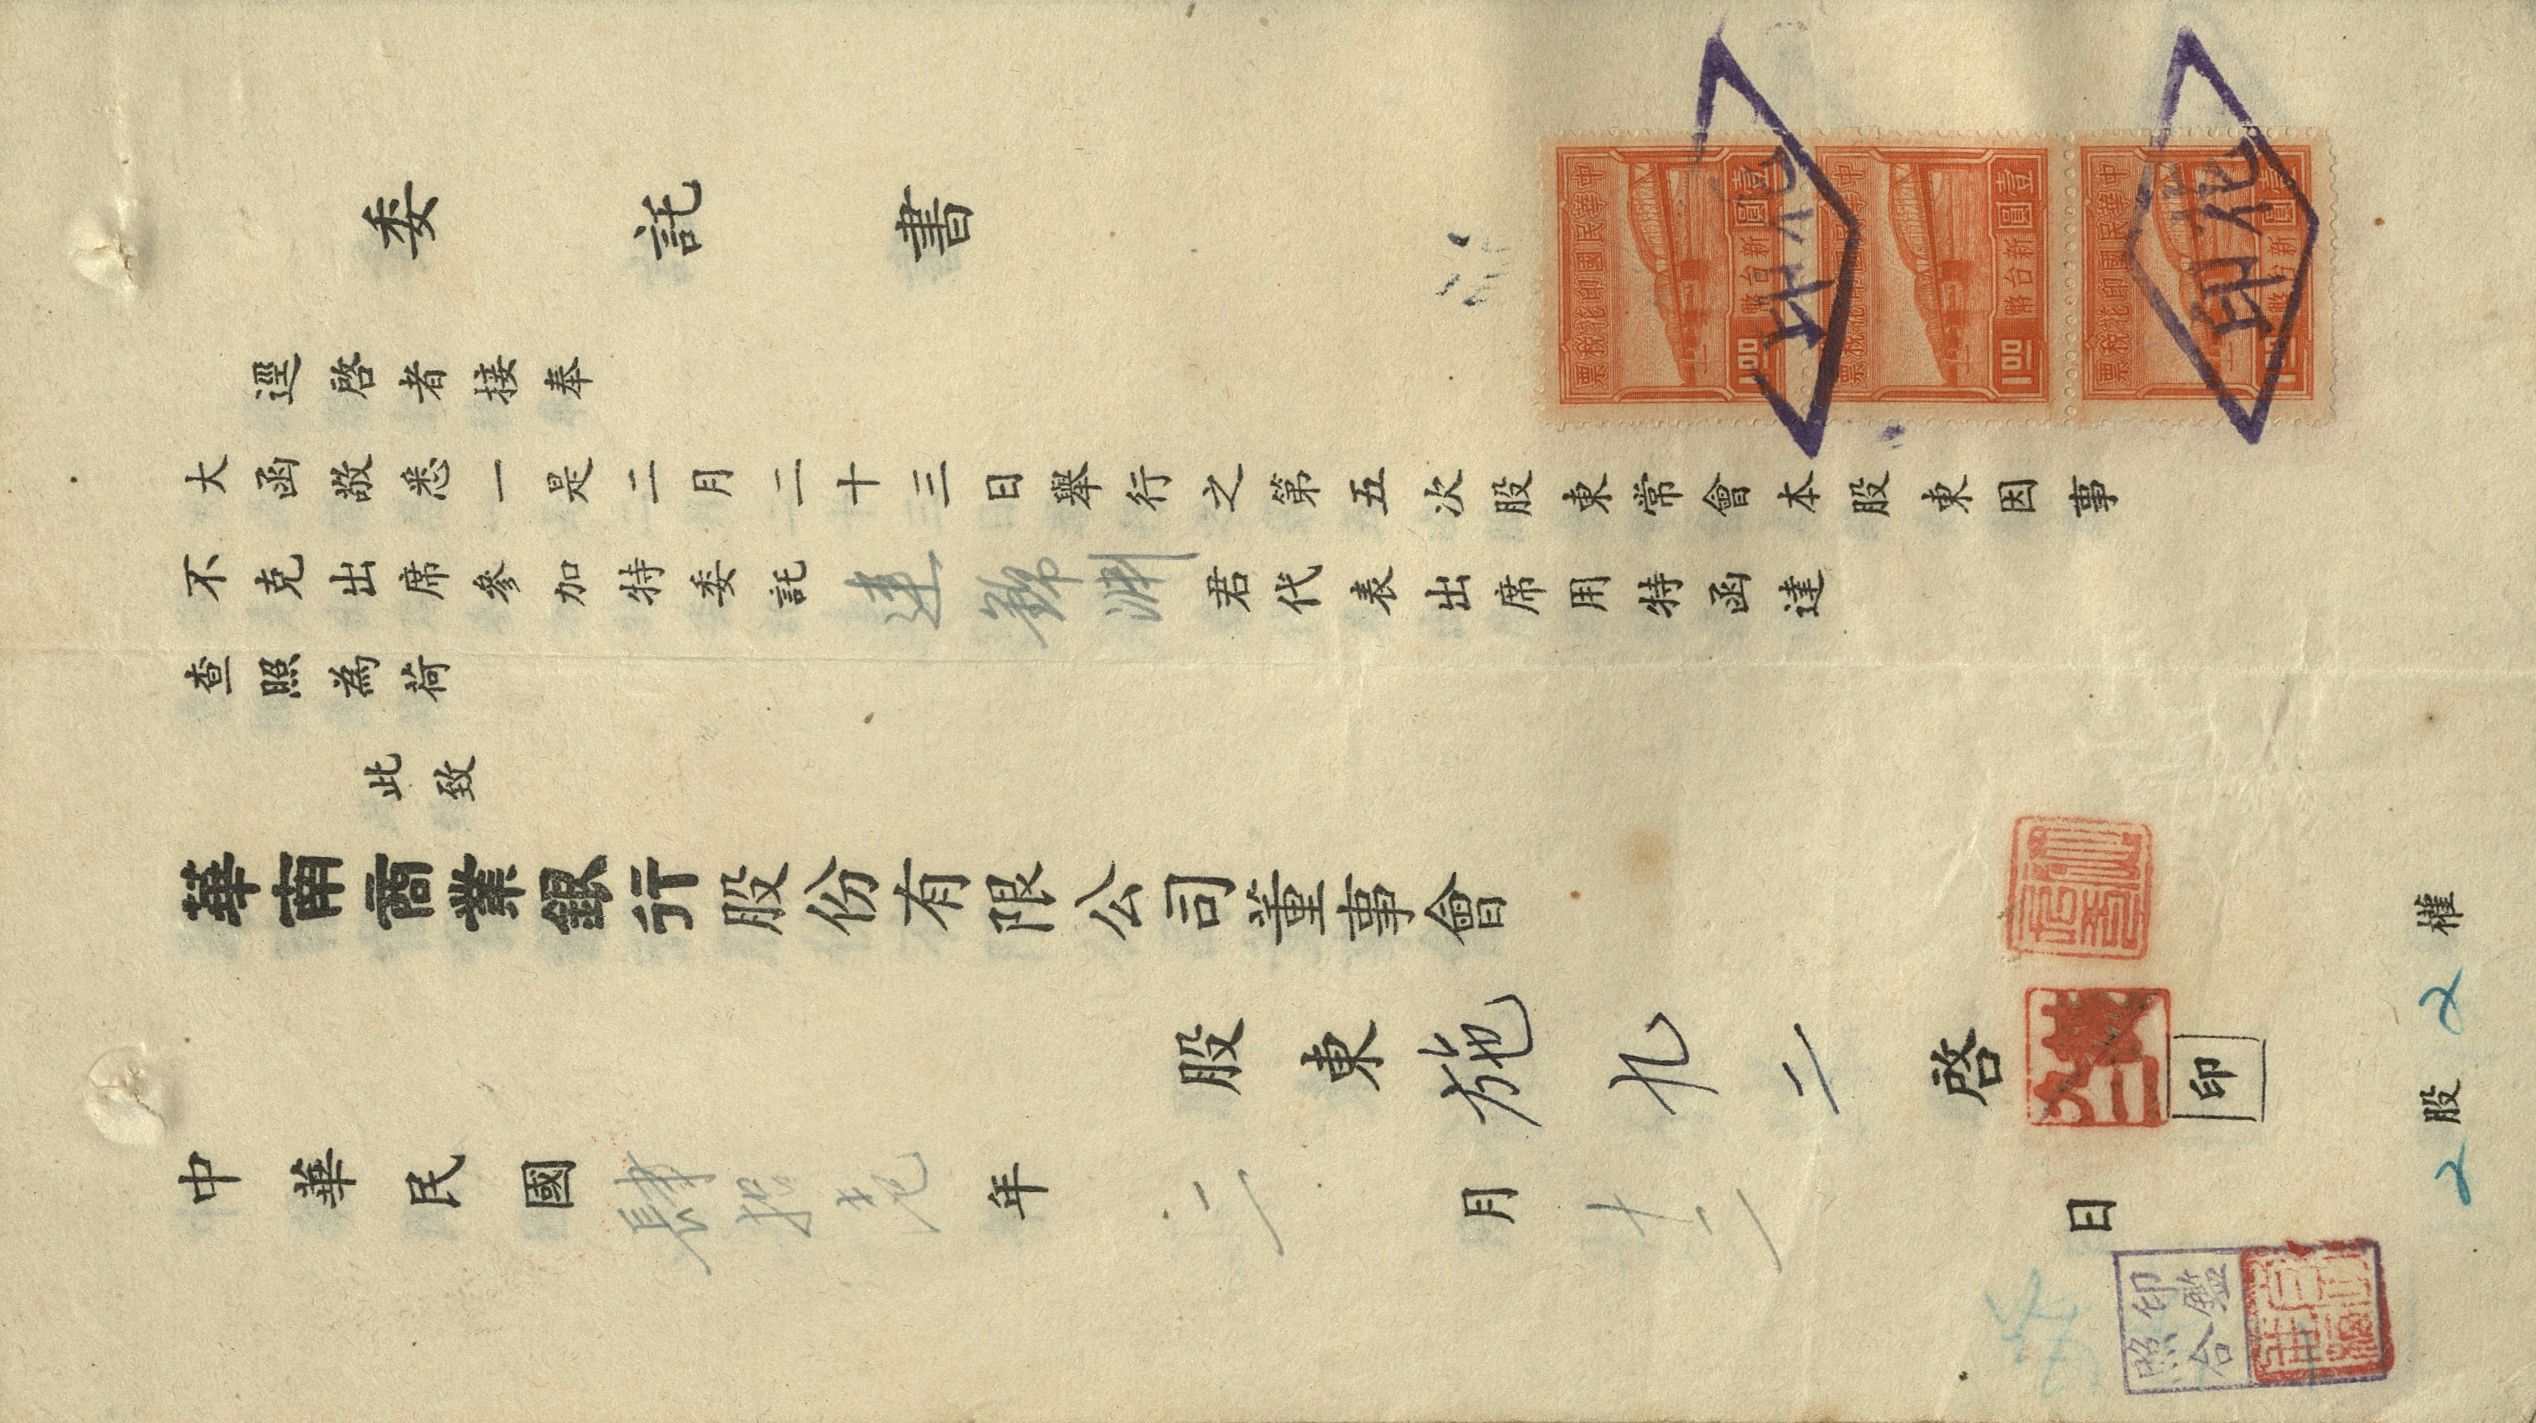 委託書
逕啓者接奉
大函敬悉一是二月二十三日舉行之第五次股東常會本股東因事
不克出席參加特委託連錦淵君代表出席用特函達
查照為荷
此致
華南商業銀行股份有限公司董事會
股東施九二啓
印
中華民國肆拾年二月十二日
2股2權
中華民國印花稅票
壹圓
新台幣
1.00
中華民國印花稅票
壹圓
新台幣
1.00
中華民國印花稅票
壹圓
新台幣
1.00
印花
印花
印鑑
照合